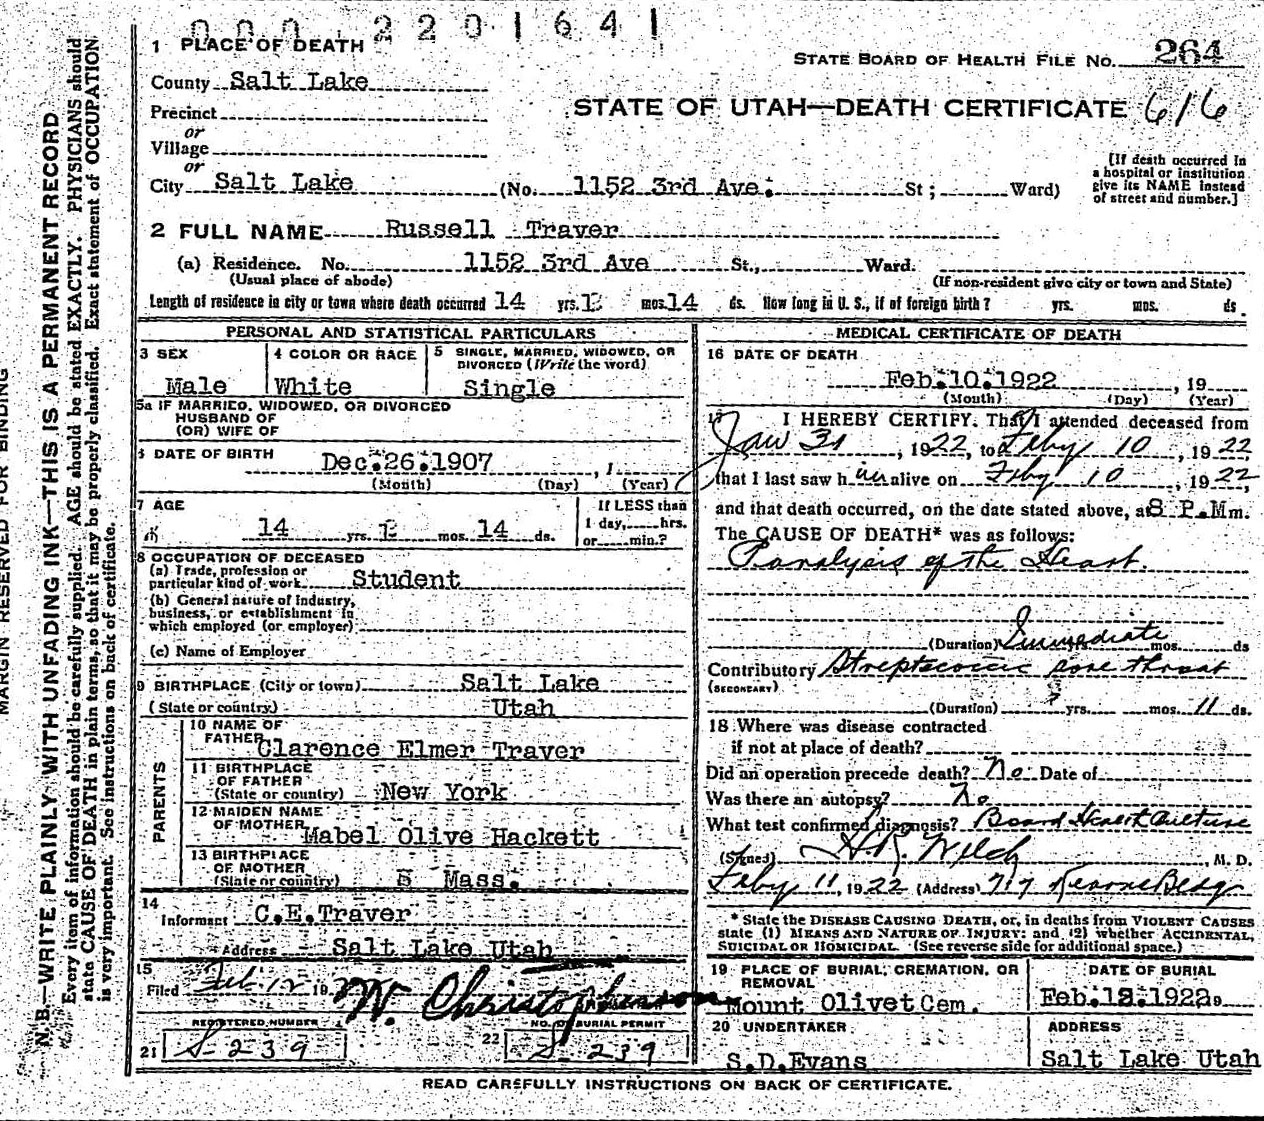 000 2201641
1 PLACE OF DEATH
STATE BOARD OF HEALTH FILE NO. 264
County Salt Lake
STATE OF UTAH—DEATH CERTIFICATE 616
Precinct
or
Village
or
City Salt Lake (No. 1152 3rd Ave. St ; Ward)
[If death occurred in
a hospital or institution
give its NAME instead
of street and number.]
2 FULL NAME Russell Traver
(a) Residence. No. 1152 3rd Ave St., Ward.
(Usual place of abode) (If non-resident give city or town and State)
Length of residence in city or town where death occurred 14 yrs. 1 mos. 14 ds. How long in U. S., if of foreign birth? yrs. mos. ds.
PERSONAL AND STATISTICAL PARTICULARS
3 SEX
Male
4 COLOR OR RACE
White
5 SINGLE, MARRIED, WIDOWED, OR
DIVORCED (Write the word)
Single
5a IF MARRIED, WIDOWED, OR DIVORCED
HUSBAND OF
(OR) WIFE OF
6 DATE OF BIRTH
Dec. 26. 1907 , 1
(Month) (Day) (Year)
7 AGE
14 yrs. 1 mos. 14 ds.
If LESS than
1 day, hrs.
or min.?
8 OCCUPATION OF DECEASED
(a) Trade, profession or
particular kind of work Student
(b) General nature of Industry,
business, or establishment in
which employed (or employer)
(c) Name of Employer
9 BIRTHPLACE (City or town) Salt Lake
(State or country) Utah
PARENTS
10 NAME OF
FATHER Clarence Elmer Traver
11 BIRTHPLACE
OF FATHER
(State or country) New York
12 MAIDEN NAME
OF MOTHER Mabel Olive Hackett
13 BIRTHPLACE
OF MOTHER
(State or country) Mass.
14
Informant C.E.Traver
Address Salt Lake Utah
15
Filed Feb. 12 19 W. Christopherson
REGISTERED NUMBER
21 S-239
NO. OF BURIAL PERMIT
22 S-239
MEDICAL CERTIFICATE OF DEATH
16 DATE OF DEATH
Feb. 10. 1922 , 19
(Month) (Day) (Year)
17 I HEREBY CERTIFY. That I attended deceased from
Jan 31 , 1922, to Feby 10 , 1922,
that I last saw h im alive on Feby 10 , 1922,
and that death occurred, on the date stated above, at 8 P.M m.
The CAUSE OF DEATH* was as follows:
Paralysis of the Heart.
(Duration) Immediate mos. ds
Contributory Streptococcic sore throat
(SECONDARY)
(Duration) yrs. mos. 11 ds.
18 Where was disease contracted
if not at place of death?
Did an operation precede death? No. Date of
Was there an autopsy? No
What test confirmed diagnosis? Board Health Culture
(Signed) H.R. Welch , M. D.
Feby 11, 1922 (Address) 717 Kearns Bldg
* State the DISEASE CAUSING DEATH, or, in deaths from VIOLENT CAUSES
state (1) MEANS AND NATURE OF INJURY; and (2) whether ACCIDENTAL,
SUICIDAL OR HOMICIDAL. (See reverse side for additional space.)
19 PLACE OF BURIAL, CREMATION, OR
REMOVAL
Mount Olivet Cem.
DATE OF BURIAL
Feb. 12. 1922
20 UNDERTAKER
S.D.Evans
ADDRESS
Salt Lake Utah
READ CAREFULLY INSTRUCTIONS ON BACK OF CERTIFICATE.
MARGIN RESERVED FOR BINDING
N. B.—WRITE PLAINLY WITH UNFADING INK—THIS IS A PERMANENT RECORD
Every item of information should be carefully supplied. AGE should be stated EXACTLY. PHYSICIANS should
state CAUSE OF DEATH in plain terms, so that it may be properly classified. Exact statement of OCCUPATION
is very important. See instructions on back of certificate.